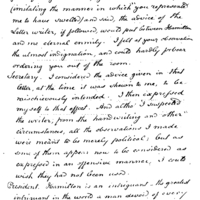 (imitating the manner in which you expressed
me to have sweated) and said, the advice of the
Letter writer, if followed, would put between Hamilton
and me eternal enmity. I felt at your
the utmost indignation, and could hardly forbear
ordering you out of the room.
Secretary. I considered the advice given in that
letter, at the time it was shewn to me, to be
mischievously intended. I then expressed
myself to that effect. And altho' I suspected
the writer, from the handwriting and other
circumstances, all the observations I made
were meant to be merely political; but as
some of them appear now to be considered as
expressed in an offensive manner, I could
wish they had not been used.
President. Hamilton is an intriguant - the greatest
intriguant in the world - a man devoid of every